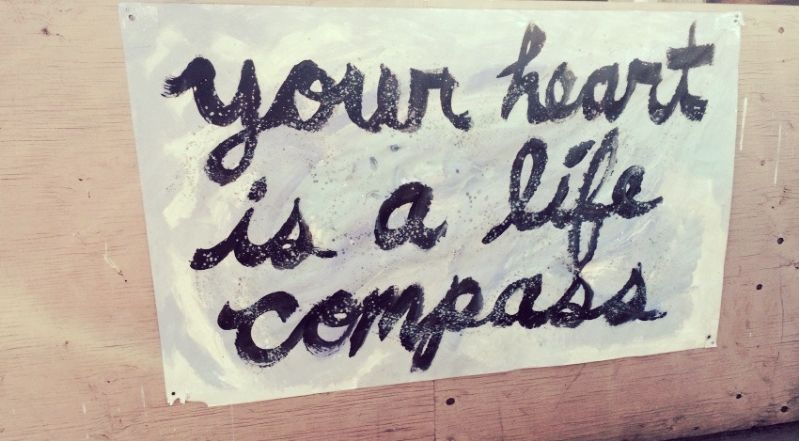 your heart
is a life
compass